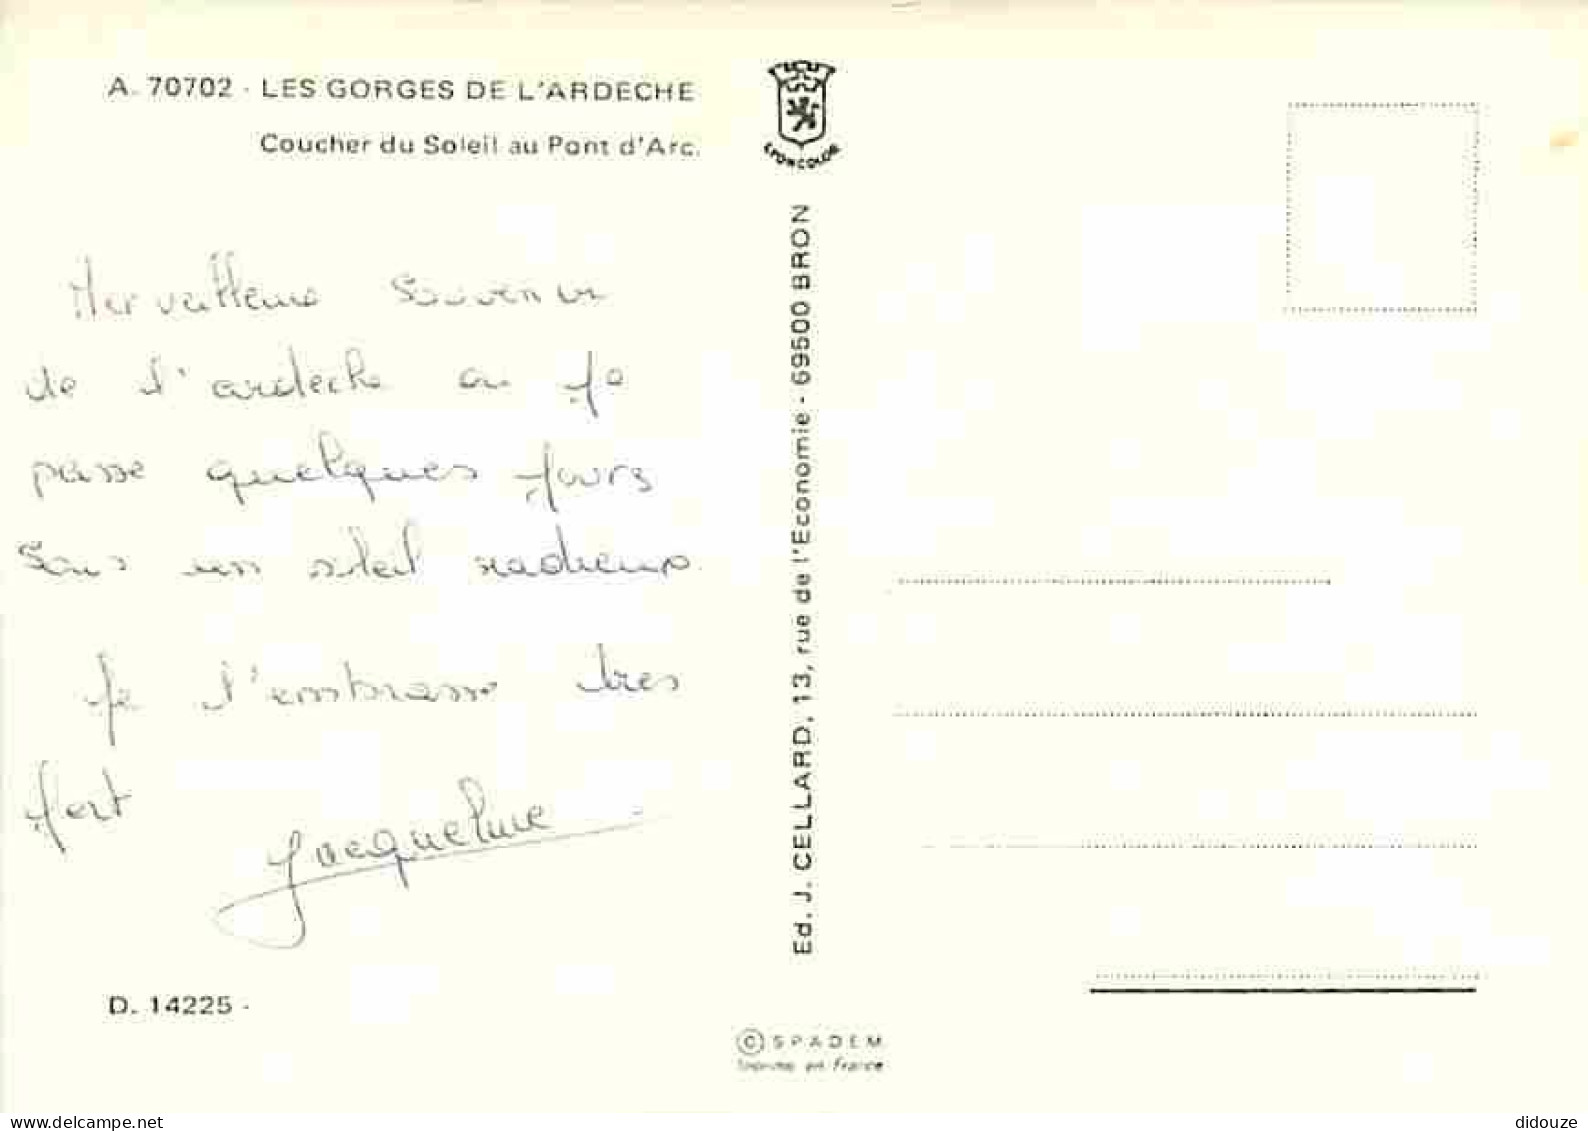 A. 70702 - LES GORGES DE L'ARDECHE
Coucher du Soleil au Pont d'Arc.
LYONCOLOR
Merveilleux souvenir
de l'ardeche ou je
passe quelques jours
sous un soleil radieux.
Je t'embrasse tres
fort
Jacqueline
D. 14225 -
Ed. J. CELLARD, 13, rue de l'Economie - 69500 BRON
© SPADEM
Imprimé en France
delcampe.net
didouze